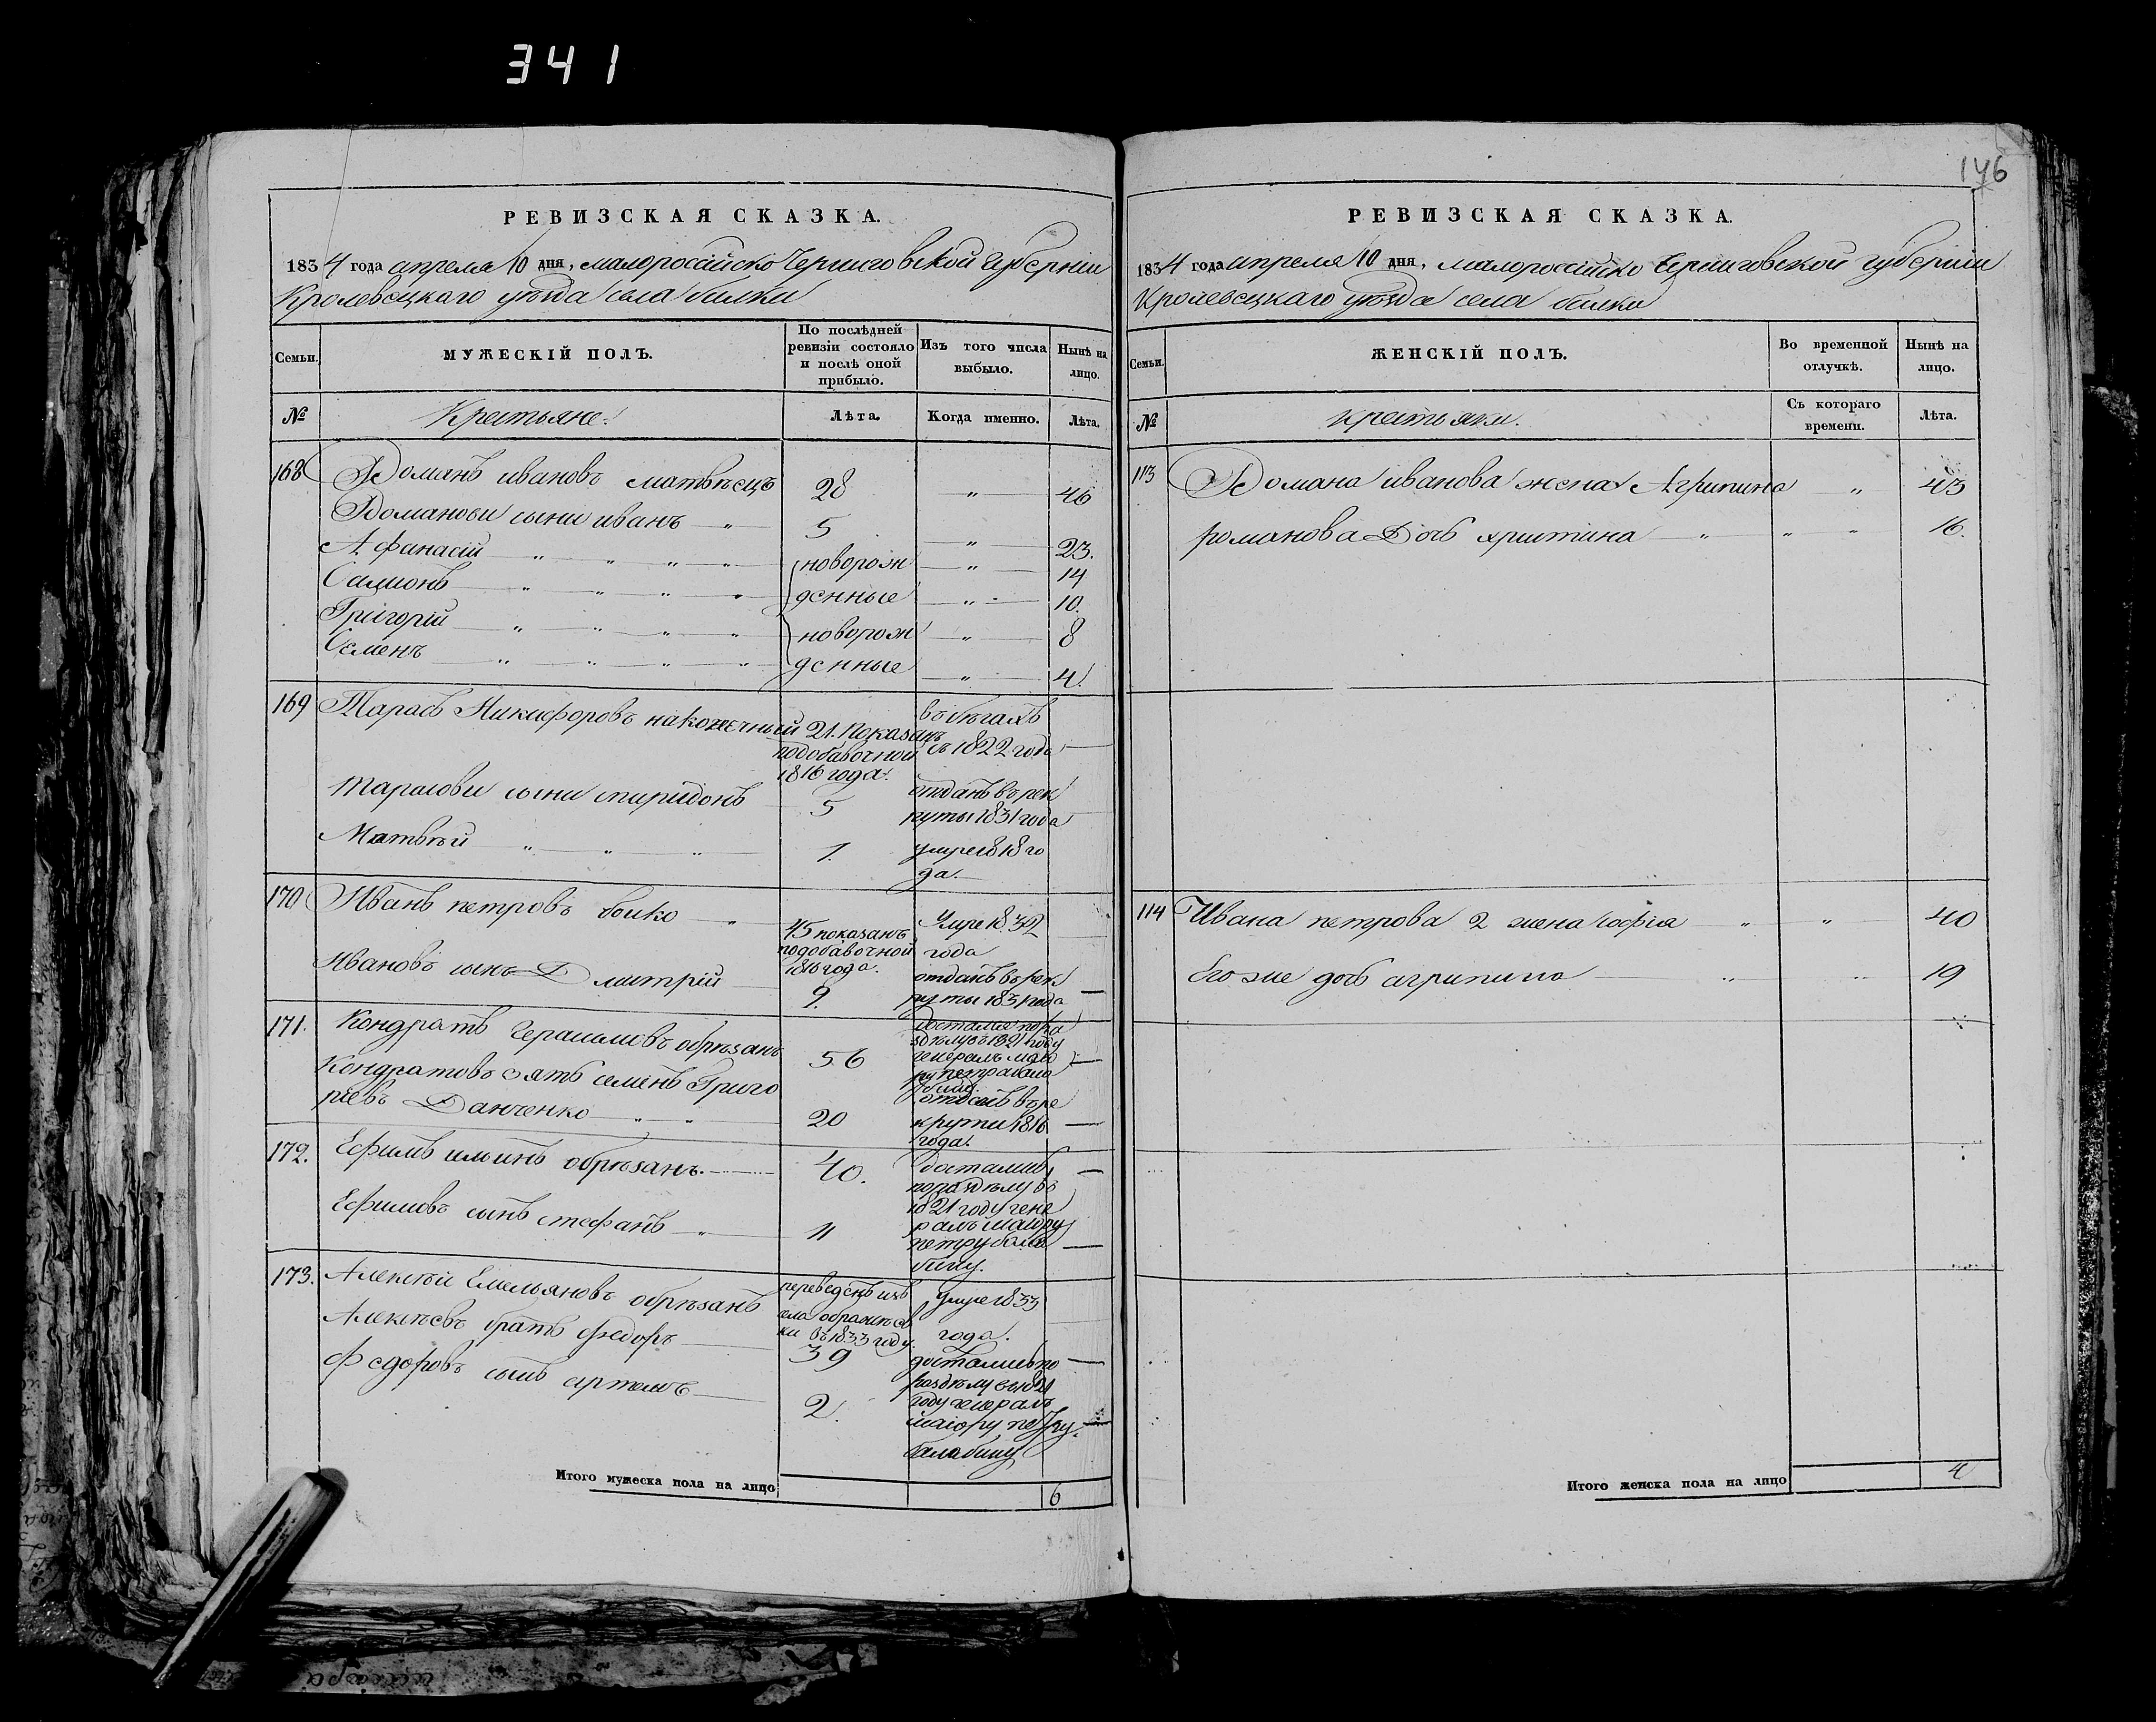 341
146
РЕВИЗСКАЯ СКАЗКА.
1834 года апреля 10 дня, малоросійско Черниговской Губерніи
Кролевецкаго уѣзда села билки
Семьи.
МУЖЕСКІЙ ПОЛЪ.
По послѣдней ревизіи состояло и послѣ оной прибыло.
Изъ того числа выбыло.
Нынѣ на лицо.
№
Крестьяне.
Лѣта.
Когда именно.
Лѣта.
168 Романъ ивановъ матвѣецъ 28 " 46
Романови сыни иванъ " 5 " 23.
Афанасій " " " " новорож " 14
Самионъ " " " " денные " 10.
Григорій " " " " новорож " 8
Семенъ " " " " денные " 4.
169 Тарасъ Никифоровъ наконечный 21. показанъ
подобавочной
1816 года.
въ бѣгахъ
съ 1822 года
Тарасови сыни спиридонъ 5
отданъ въ рек
руты 1831 года
Матвѣй " " " 1.
умре 1818 го
да.
170 Иванъ петровъ бойко "
45 показанъ
подобавочной
1816 года.
Умре 1832
года
Ивановъ сынъ Дмитрій 9.
отданъ въ рек
руты 1831 года
171. Кондратъ Герасимовъ обрѣзанъ 56
достался пора
здѣлу въ 1821 году
генералъ маіо
ру петру бала
бину.
Кондратовъ зять семенъ Григо
ріевъ Данченко " " 20
отданъ въ ре
крути 1816
года.
172. Ефимъ ильинъ обрѣзанъ. 40.
Ефимовъ сынъ стефанъ " 11
достались
поразделу въ
1821 году гене
ралъ маіору
петру бала
бину.
173. Алексѣй Емельяновъ обрѣзанъ
переведенъ изъ
села ображѣев
ки въ 1833 году.
умре 1833
года.
Алексѣевъ братъ Федоръ 39
Федоровъ сынъ артемъ 2.
достались по
раздѣлу въ 1821
году генералъ
маіору петру
балабину
Итого мужеска пола на лицо 6
РЕВИЗСКАЯ СКАЗКА.
1834 года апреля 10 дня, малоросійско Черниговской губерніи
Кролевецкаго уѣзда села билки
Семьи.
ЖЕНСКІЙ ПОЛЪ.
Во временной отлучкѣ.
Нынѣ на лицо.
№
крестьяки.
Съ котораго времени.
Лѣта.
113 Романа иванова жена Агрипина " 43
романова Дочь христина " " " 16.
114 Ивана петрова 2 жена софія " " 40
Его же дочь агрипина " " 19
Итого женска пола на лицо 4